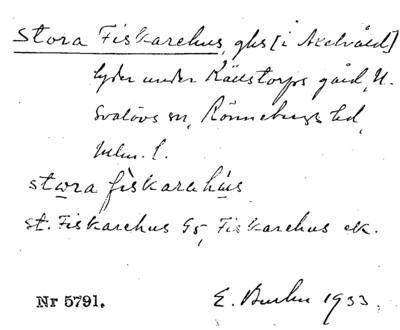 Stora Fiskarehus, ghs [i Axelvåld]
lyder under Källstorps gård, N.
Svalövs sn, Rönnebergs hd,
Mlm. l.
stωra fiskarahús
st. Fiskarehus Gs, Fiskarehus ek.
Nr 5791. E. 1933.